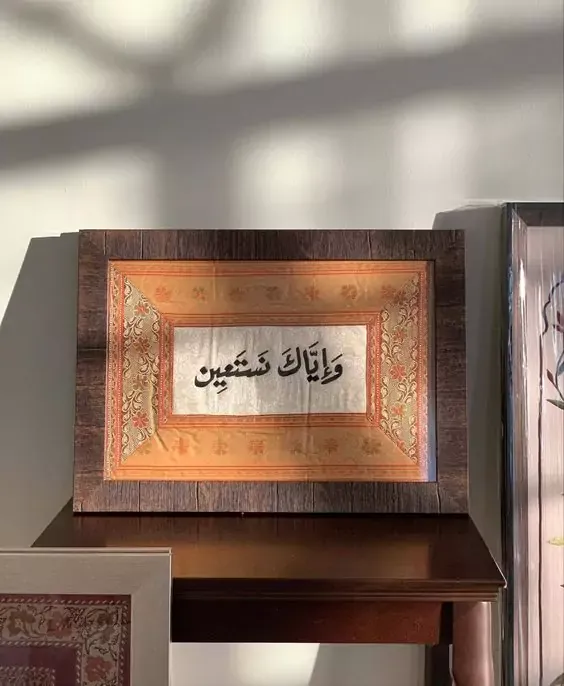 وَإِيَّاكَ نَسْتَعِين